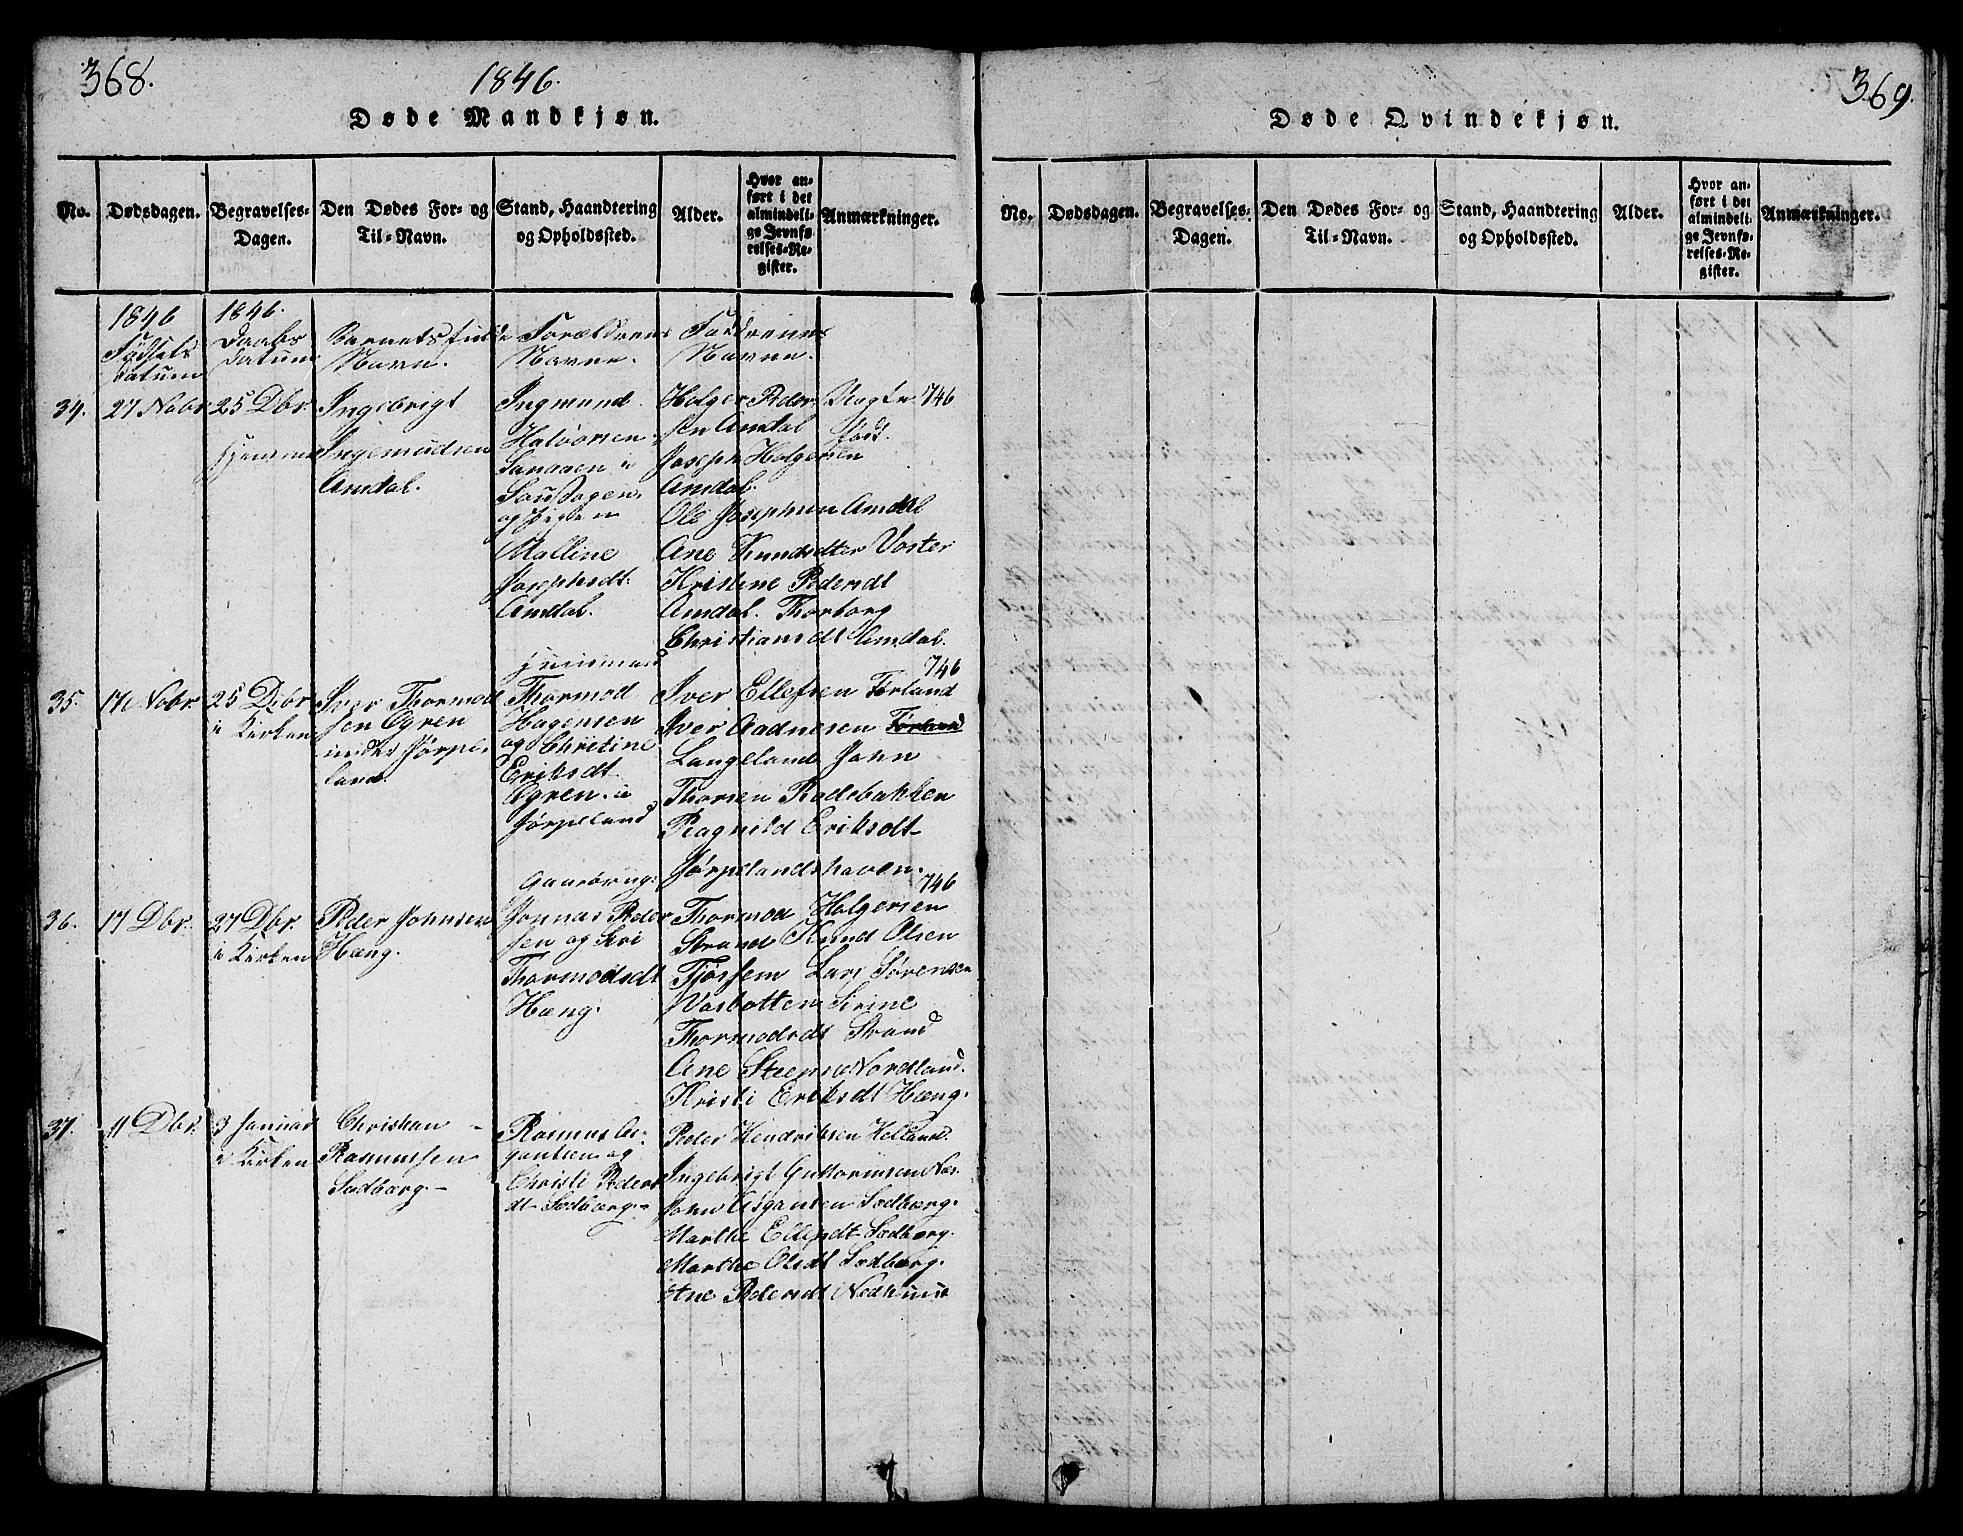 368.
1846.
Døde Mandkjøn.
No.
Dødsdagen.
Begravelses-
Dagen.
Den Dødes For- og
Til-Navn.
Stand, Haandtering
og Opholdssted.
Alder.
Hvor an-
ført i det
almindeli-
ge Jevnfø-
relses-Re-
gister.
Anmærkninger.
1846
Fødsels
Datum
1846.
Daabs
Datum
Barnets fulde
Navn.
Forældrenes
Navne.
Faddrenes
Navne.
34.
27 Nobr
25 Dbr.
hjemme
Ingebrigt
Ingemudsen
Amdal.
Ingmund
Halvorsen
i
og Pigen
Malline
Josephsdt.
Amdal.
Holger Peder-
sen Amdal
Joseph Holgersen
Amdal.
Ole Josephsen Amdal
Ane Knudsdter Voster
Kristine Pedersdt
Amdal. Thorborg
Christiansdt Amdal.
Uægte
fød.
746
35.
17 Nobr
25 Debr
i Kirken
Iver Thormod
sen Ogren
under Jørpe-
land.
Huusmand
Thormod
Hagensen
og Christine
Eriksdt.
Ogren i
Jørpeland
746
Iver Ellefsen Førland
Iver Aadnesen Førland
Langeland John
Thorsen Rødebakken
Ragnild Eriksdt
Jørpelandshaven.
36.
17 Dbr.
27 Dbr.
i Kirken
Peder Johnsen
Hæng.
Gaardbrug:
Jonnas Peder
sen og Siri
Thormodsdt
Hæng.
746
Thormod Holgersen
Strand Knud Olsen
Tjøssem Lars Sørensen
Vasbotten Serine
Thormodsdt Strand
Ane Nordland.
Kristi Eriksdt Hæng.
37.
11 Dbr.
3 Januar
i Kirken
Christian
Rasmussen
Sedberg.-
Rasmus As-
gautsen og
Christi Peders
dt Sedberg.-
Peder Hendriksen Helland.
Ingebrigt Guttormsen Næs.
John Asgautsen Sedberg.
Marthe Ellendt Sedberg.
Marthe Olsdt Sedberg.
Ane Pedersdt
369.
Døde Qvindekjøn.
No.
Dødsdagen.
Begravelses-
Dagen.
Den Dødes For- og
Til-Navn.
Stand, Haandtering
og Opholdssted.
Alder.
Hvor an-
ført i det
almindeli-
ge Jevnfø-
relses-Re-
gister.
Anmærkninger.